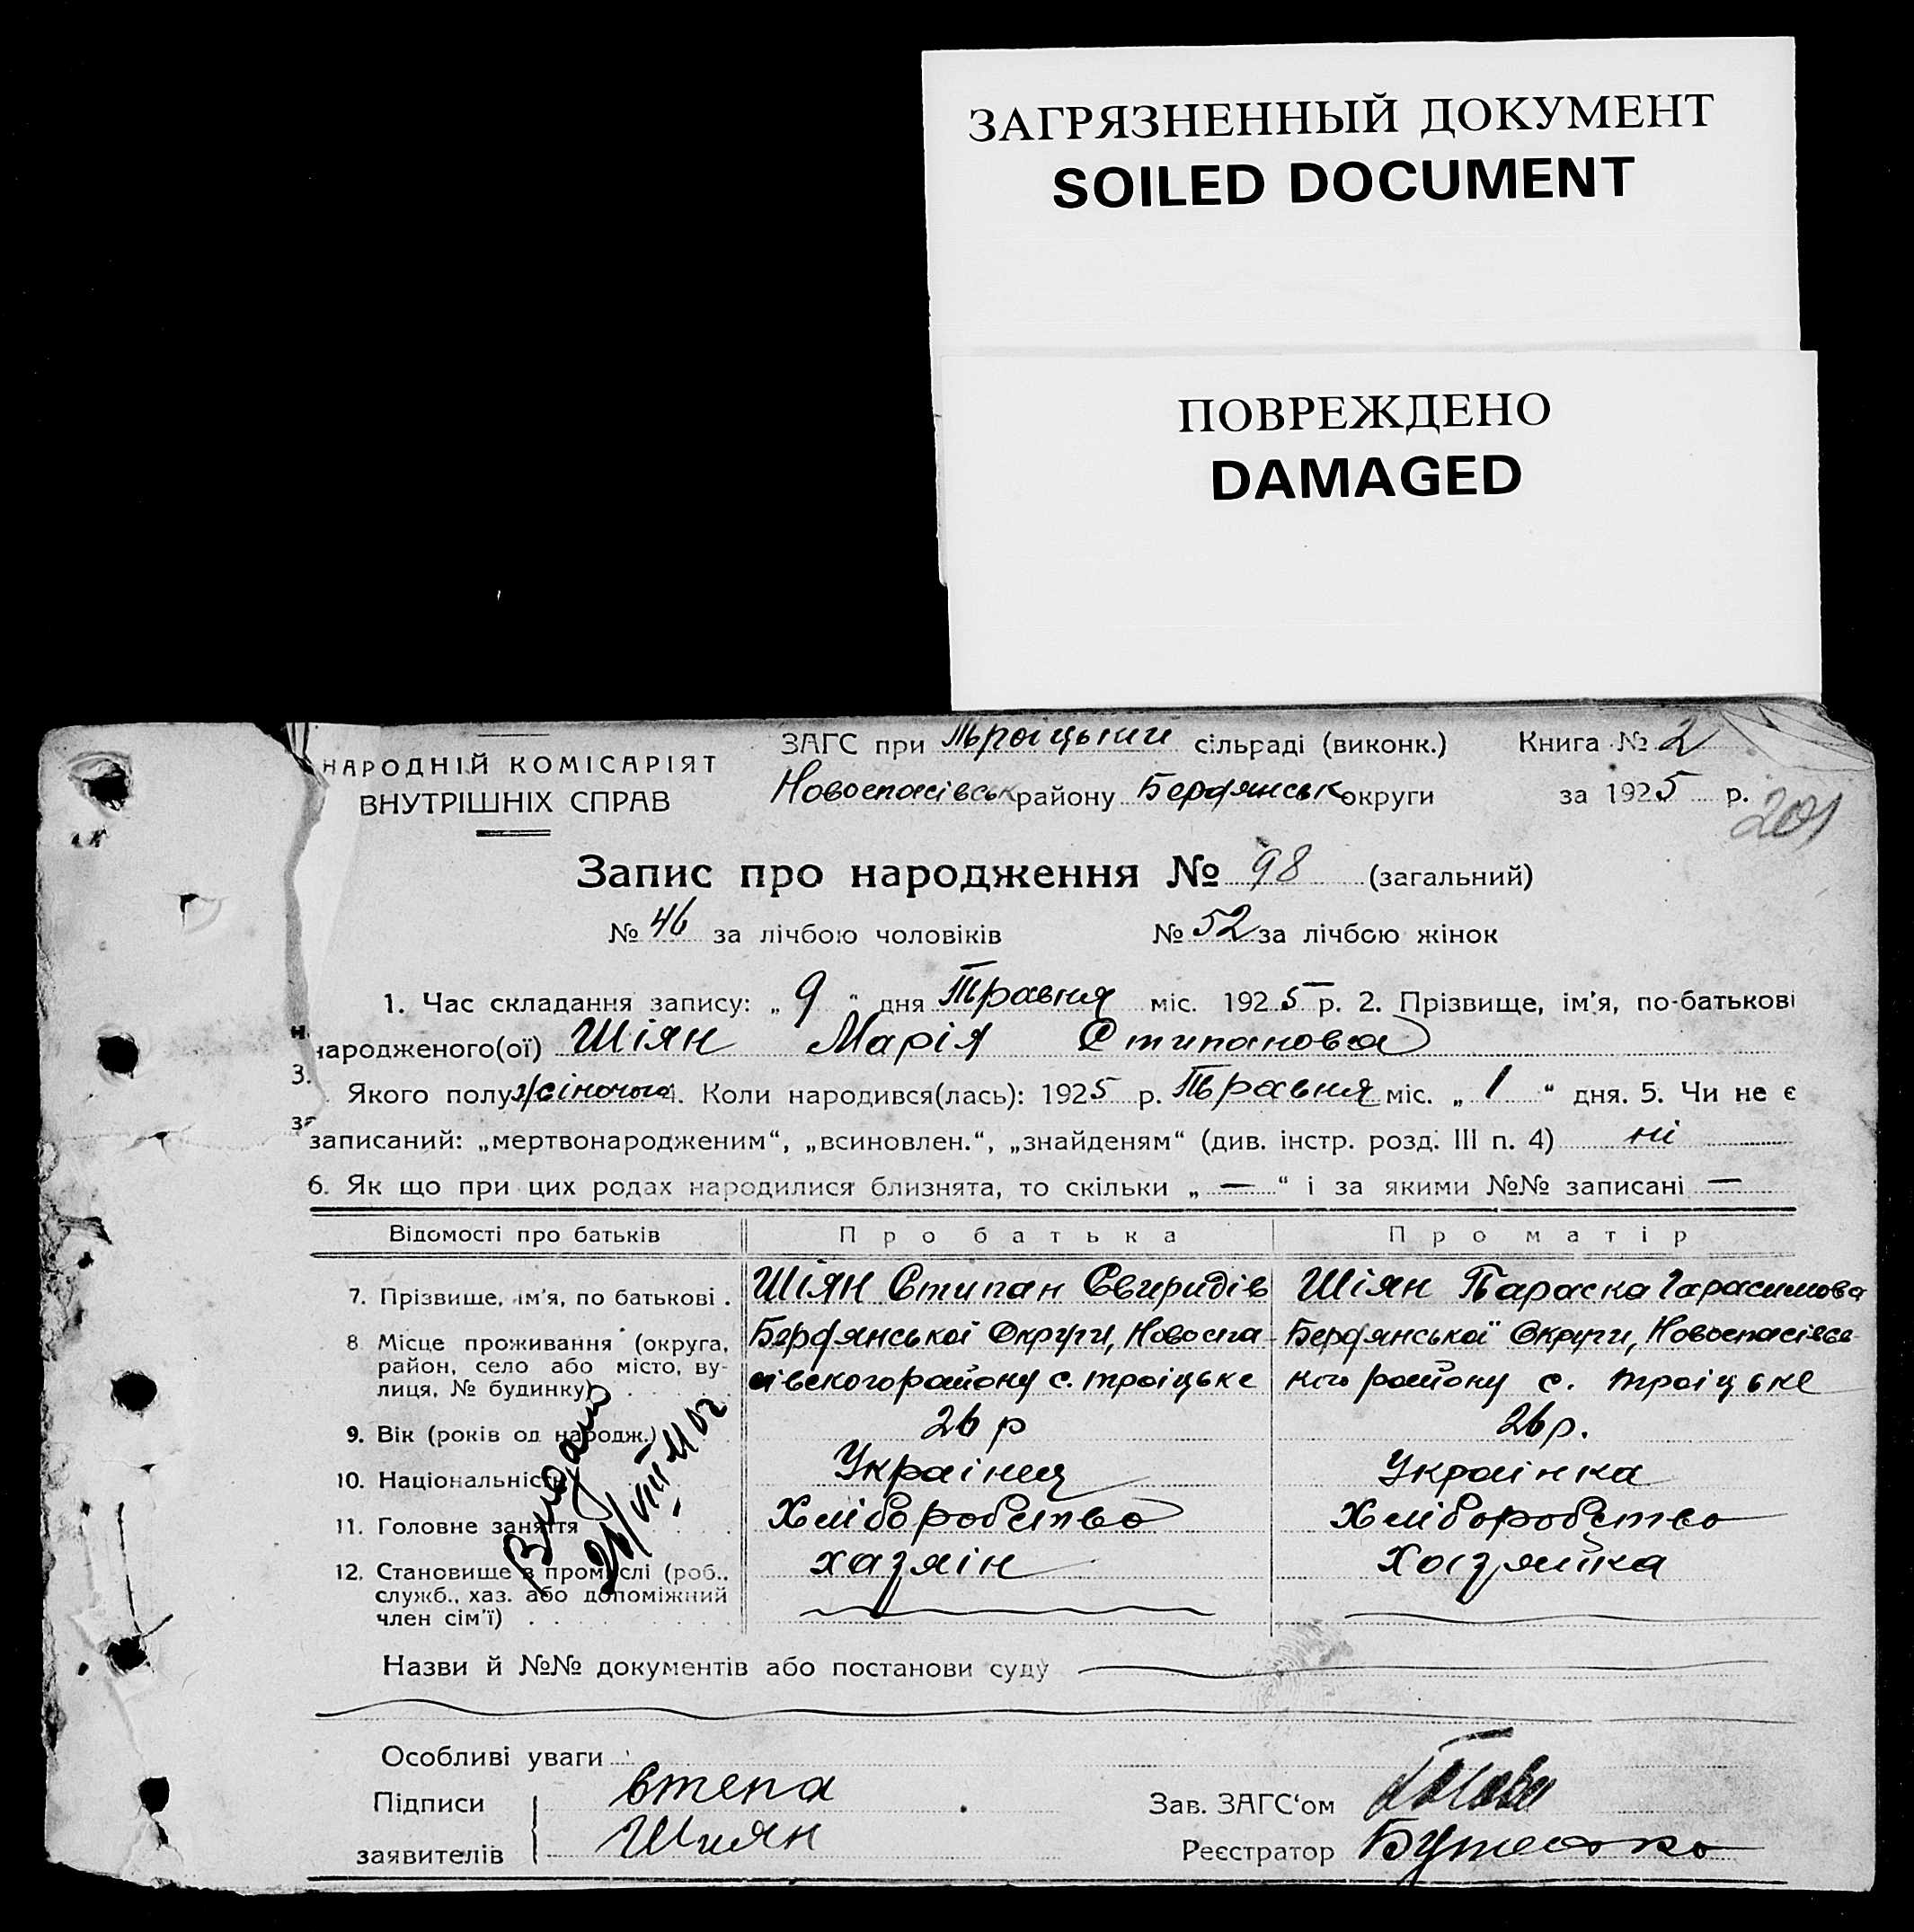 ЗАГРЯЗНЕННЫЙ ДОКУМЕНТ
SOILED DOCUMENT
ПОВРЕЖДЕНО
DAMAGED
НАРОДНІЙ КОМІСАРІЯТ
ВНУТРІШНІХ СПРАВ
ЗАГС при Троіцький сільраді (виконк.) Книга № 2
Новоспасівськ району Бердянськ округи за 1925 р.
201
Запис про народження № 98 (загальний)
№ 46 за лічбою чоловіків № 52 за лічбою жінок
1. Час складання запису: „ 9 “ дня Травня міс. 1925 р. 2. Прізвище, ім’я, по-батькові
народженого(ої) Шіян Марія Стипановна
3. Якого полу жіночого. Коли народився(лась): 1925 р. Травня міс. „ 1 “ дня. 5. Чи не є
записаний: „мертвонародженим“, „всиновлен.“, „знайденям“ (див. інстр. розд. III п. 4) ні
6. Як що при цих родах народилися близнята, то скільки „ — “ і за якими №№ записані —
Відомості про батьків Про батька Про матір
7. Прізвище, ім’я, по батькові . Шіян Стипан Свиридів Шіян Параска Гарасимова
8. Місце проживання (округа, Бердянської Округи, Новоспа- Бердянської Округи, Новоспасівсь-
район, село або місто, ву-
лиця, № будинку) сівского району с. троіцьке кого району с. троіцьке
9. Вік (років од народж.) 26 р 26 р.
10. Національність Украінец Украінка
11. Головне заняття Хліборобство Хліборобство
12. Становище в промислі (роб., хазяін Хазяйка
служб., хаз. або допоміжний
член сім’ї)
Видано
Назви й №№ документів або постанови суду
Особливі уваги
Підписи
заявителів
степа
Шиян
Зав. ЗАГС‘ом
Реєстратор